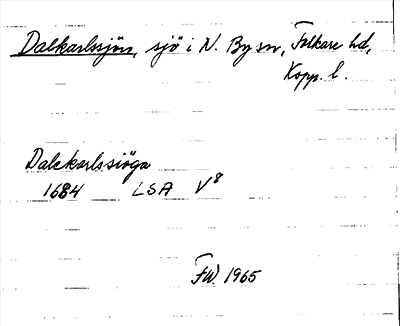 Dalkarlssjön, sjö i N. By sn, Folkare hd,
Kopp. l.
Dalckarlssiöga
1684 LSA V8
FW. 1965